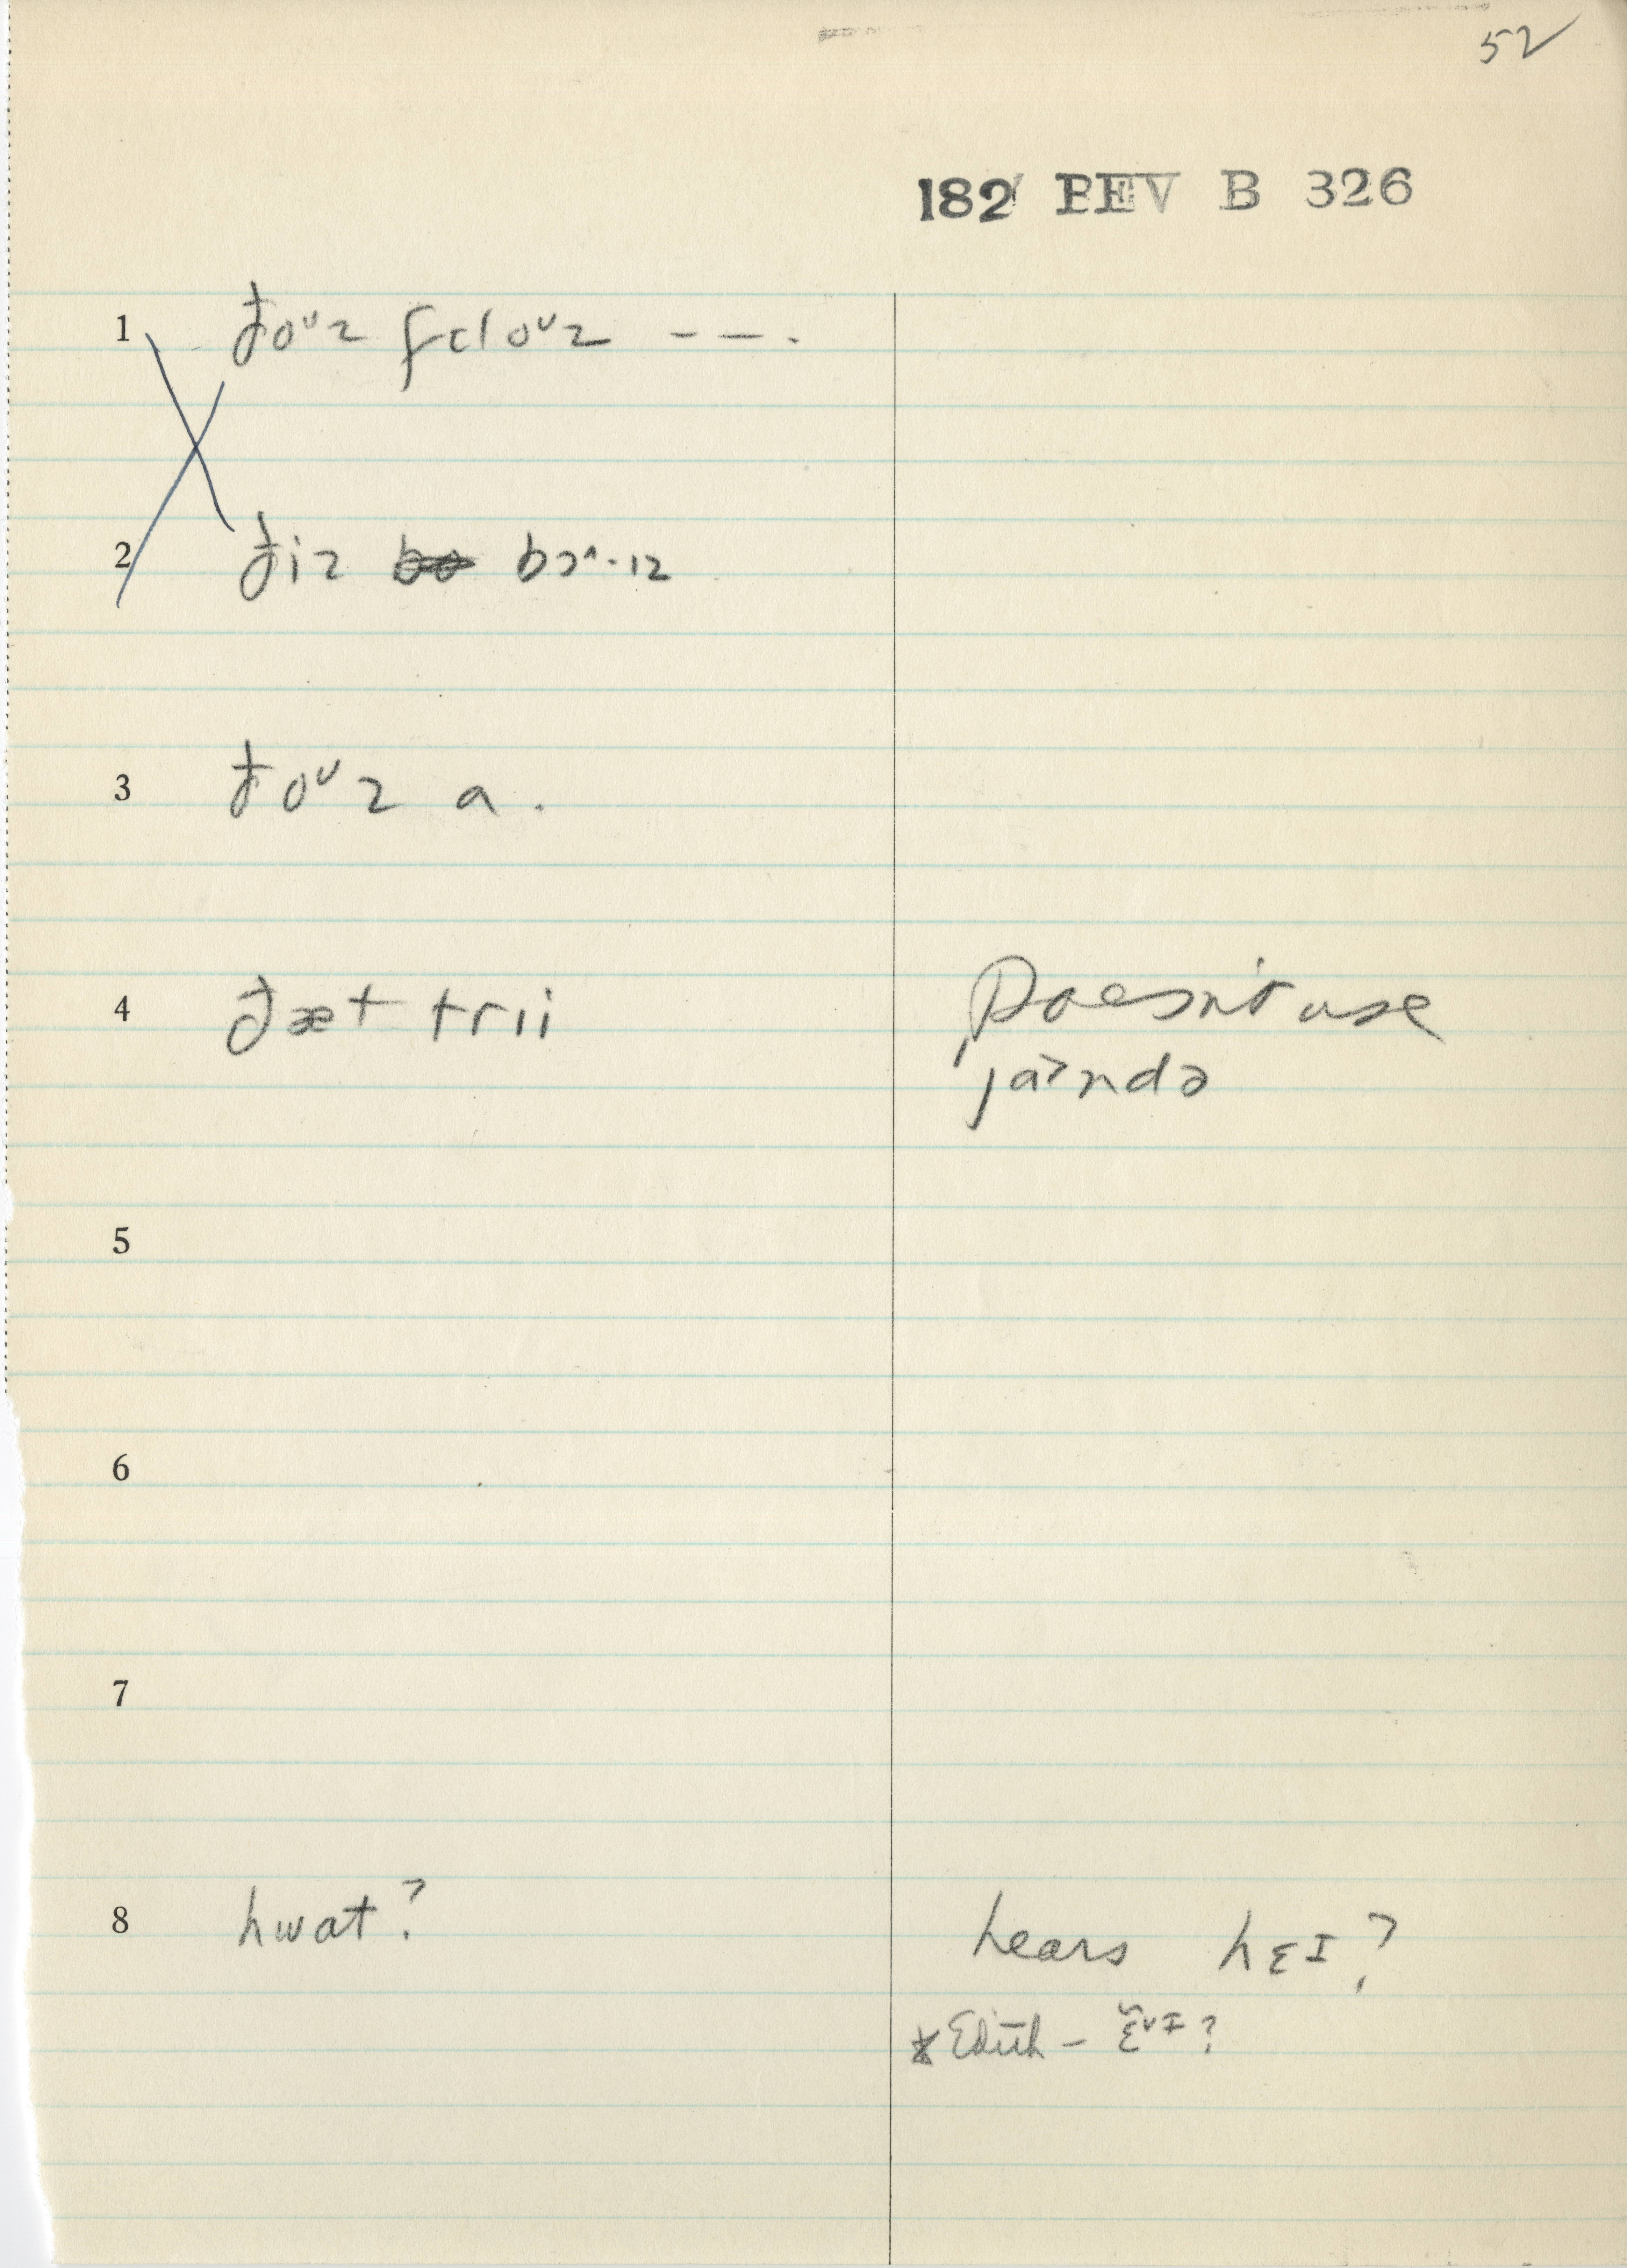 52
182 PEV B 326
1 ðoᴜz fɛloᴜz - - .
2 ðiz bɔ^·ɪz
3 ðoᴜz a .
4 ðæt trii
Doesn't use
ja˃ndə
5
6
7
8 hwat?
hears hɛɪ?
* Edith — ɛ̆ᵛɪ?